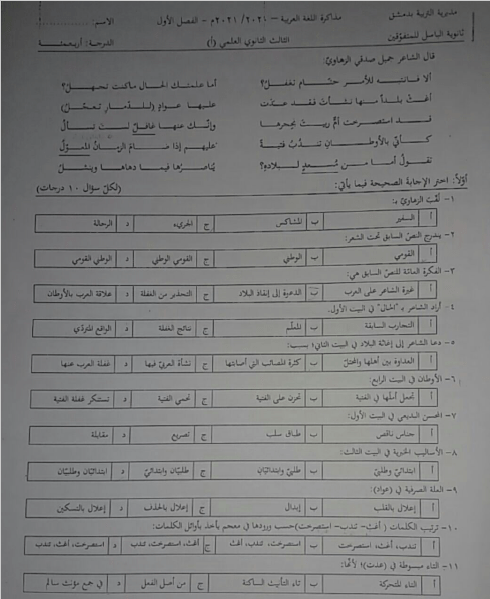 مديرية التربية بدمشق
مذاكرة اللغة العربية - ٢٠٢١/٢٠٢١م - الفصل الأول
الاسم:
ثانوية الباسل للمتفوقين
الثالث الثانوي العلمي (أ)
الدرجة: أربعمئة
قال الشاعر جميل صدقي الزهاوي:
ألا فانتبه للأمر حتام تغفل؟ أما علمتك الحال ما كنت تجهل؟
أغث بلداً منها نشأت فقد عدت عليها عوادٍ للدمار تعجّل
وقد استصرخت أمٌّ ربيت بحجرها وإنّك عنها غافلٌ لست تسأل
تقول أما من مسعدٍ لبلاده؟
أولاً: اختر الإجابة الصحيحة فيما يأتي: (لكل سؤال ١٠ درجات)
١- لقب الزهاوي بـ:
أ السفير ب المشاكس ج الجريء د الرحالة
٢- يندرج النص السابق تحت الشعر:
أ القومي ب الوطني ج القومي الوطني د الوطني القومي
٣- الفكرة العامة للنص السابق هي:
أ غيرة الشاعر على العرب ب الدعوة إلى إنقاذ البلاد ج التحذير من الغفلة د علاقة العرب بالأوطان
٤- أراد الشاعر بـ "الحال" في البيت الأول:
أ التجارب السابقة ب المعلّم ج نتائج الغفلة د الواقع المتردّي
٥- دعا الشاعر إلى إغاثة البلاد في البيت الثاني؛ بسبب:
أ العداوة بين أهلها والمحتل ب كثرة المصائب التي أصابتها ج نشأة العربي فيها د غفلة العرب عنها
٦- الأوطان في البيت الرابع:
أ تحمل أملها في الفتية ب تحزن على الفتية ج تحمي الفتية د تستنكر غفلة الفتية
٧- المحسن البديعي في البيت الأول:
أ جناس ناقص ب طباق سلب ج تصريع د مقابلة
٨- الأساليب الخبرية في البيت الثالث:
أ ابتدائيّ وطلبيّ ب طلبيّ وابتدائيّان ج طلبيّان وابتدائيّ د ابتدائيّان وطلبيّان
٩- العلة الصرفية في (عواد):
أ إعلال بالقلب ب إبدال ج إعلال بالحذف د إعلال بالتسكين
١٠- ترتيب الكلمات (أغث - تندب - استصرخت) حسب ورودها في معجم يأخذ بأوائل الكلمات:
أ تندب، أغث، استصرخت ب استصرخت، تندب، أغث ج أغث، استصرخت، تندب د استصرخت، أغث، تندب
١١- التاء مبسوطة في (عدت)؛ لأنها:
أ التاء المتحركة ب تاء التأنيث الساكنة ج من أصل الفعل د في جمع مؤنث سالم